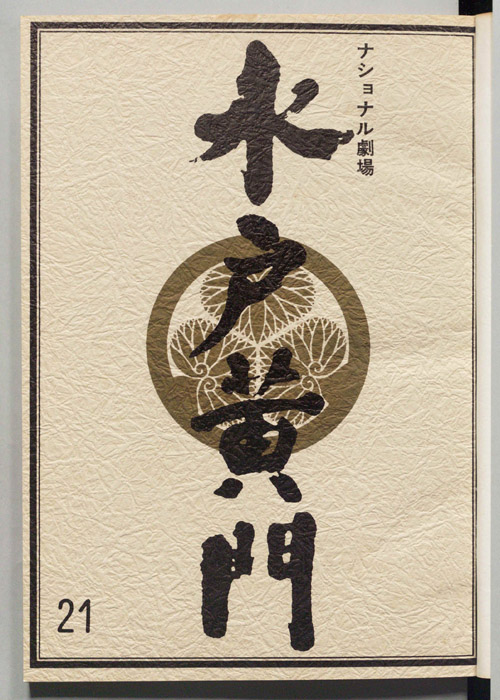 ナショナル劇場
水戸黄門
21